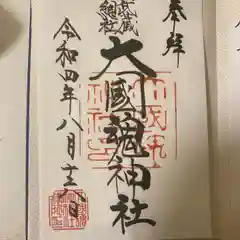 奉拝
武蔵
総社
大國魂神社
令和四年八月十六日